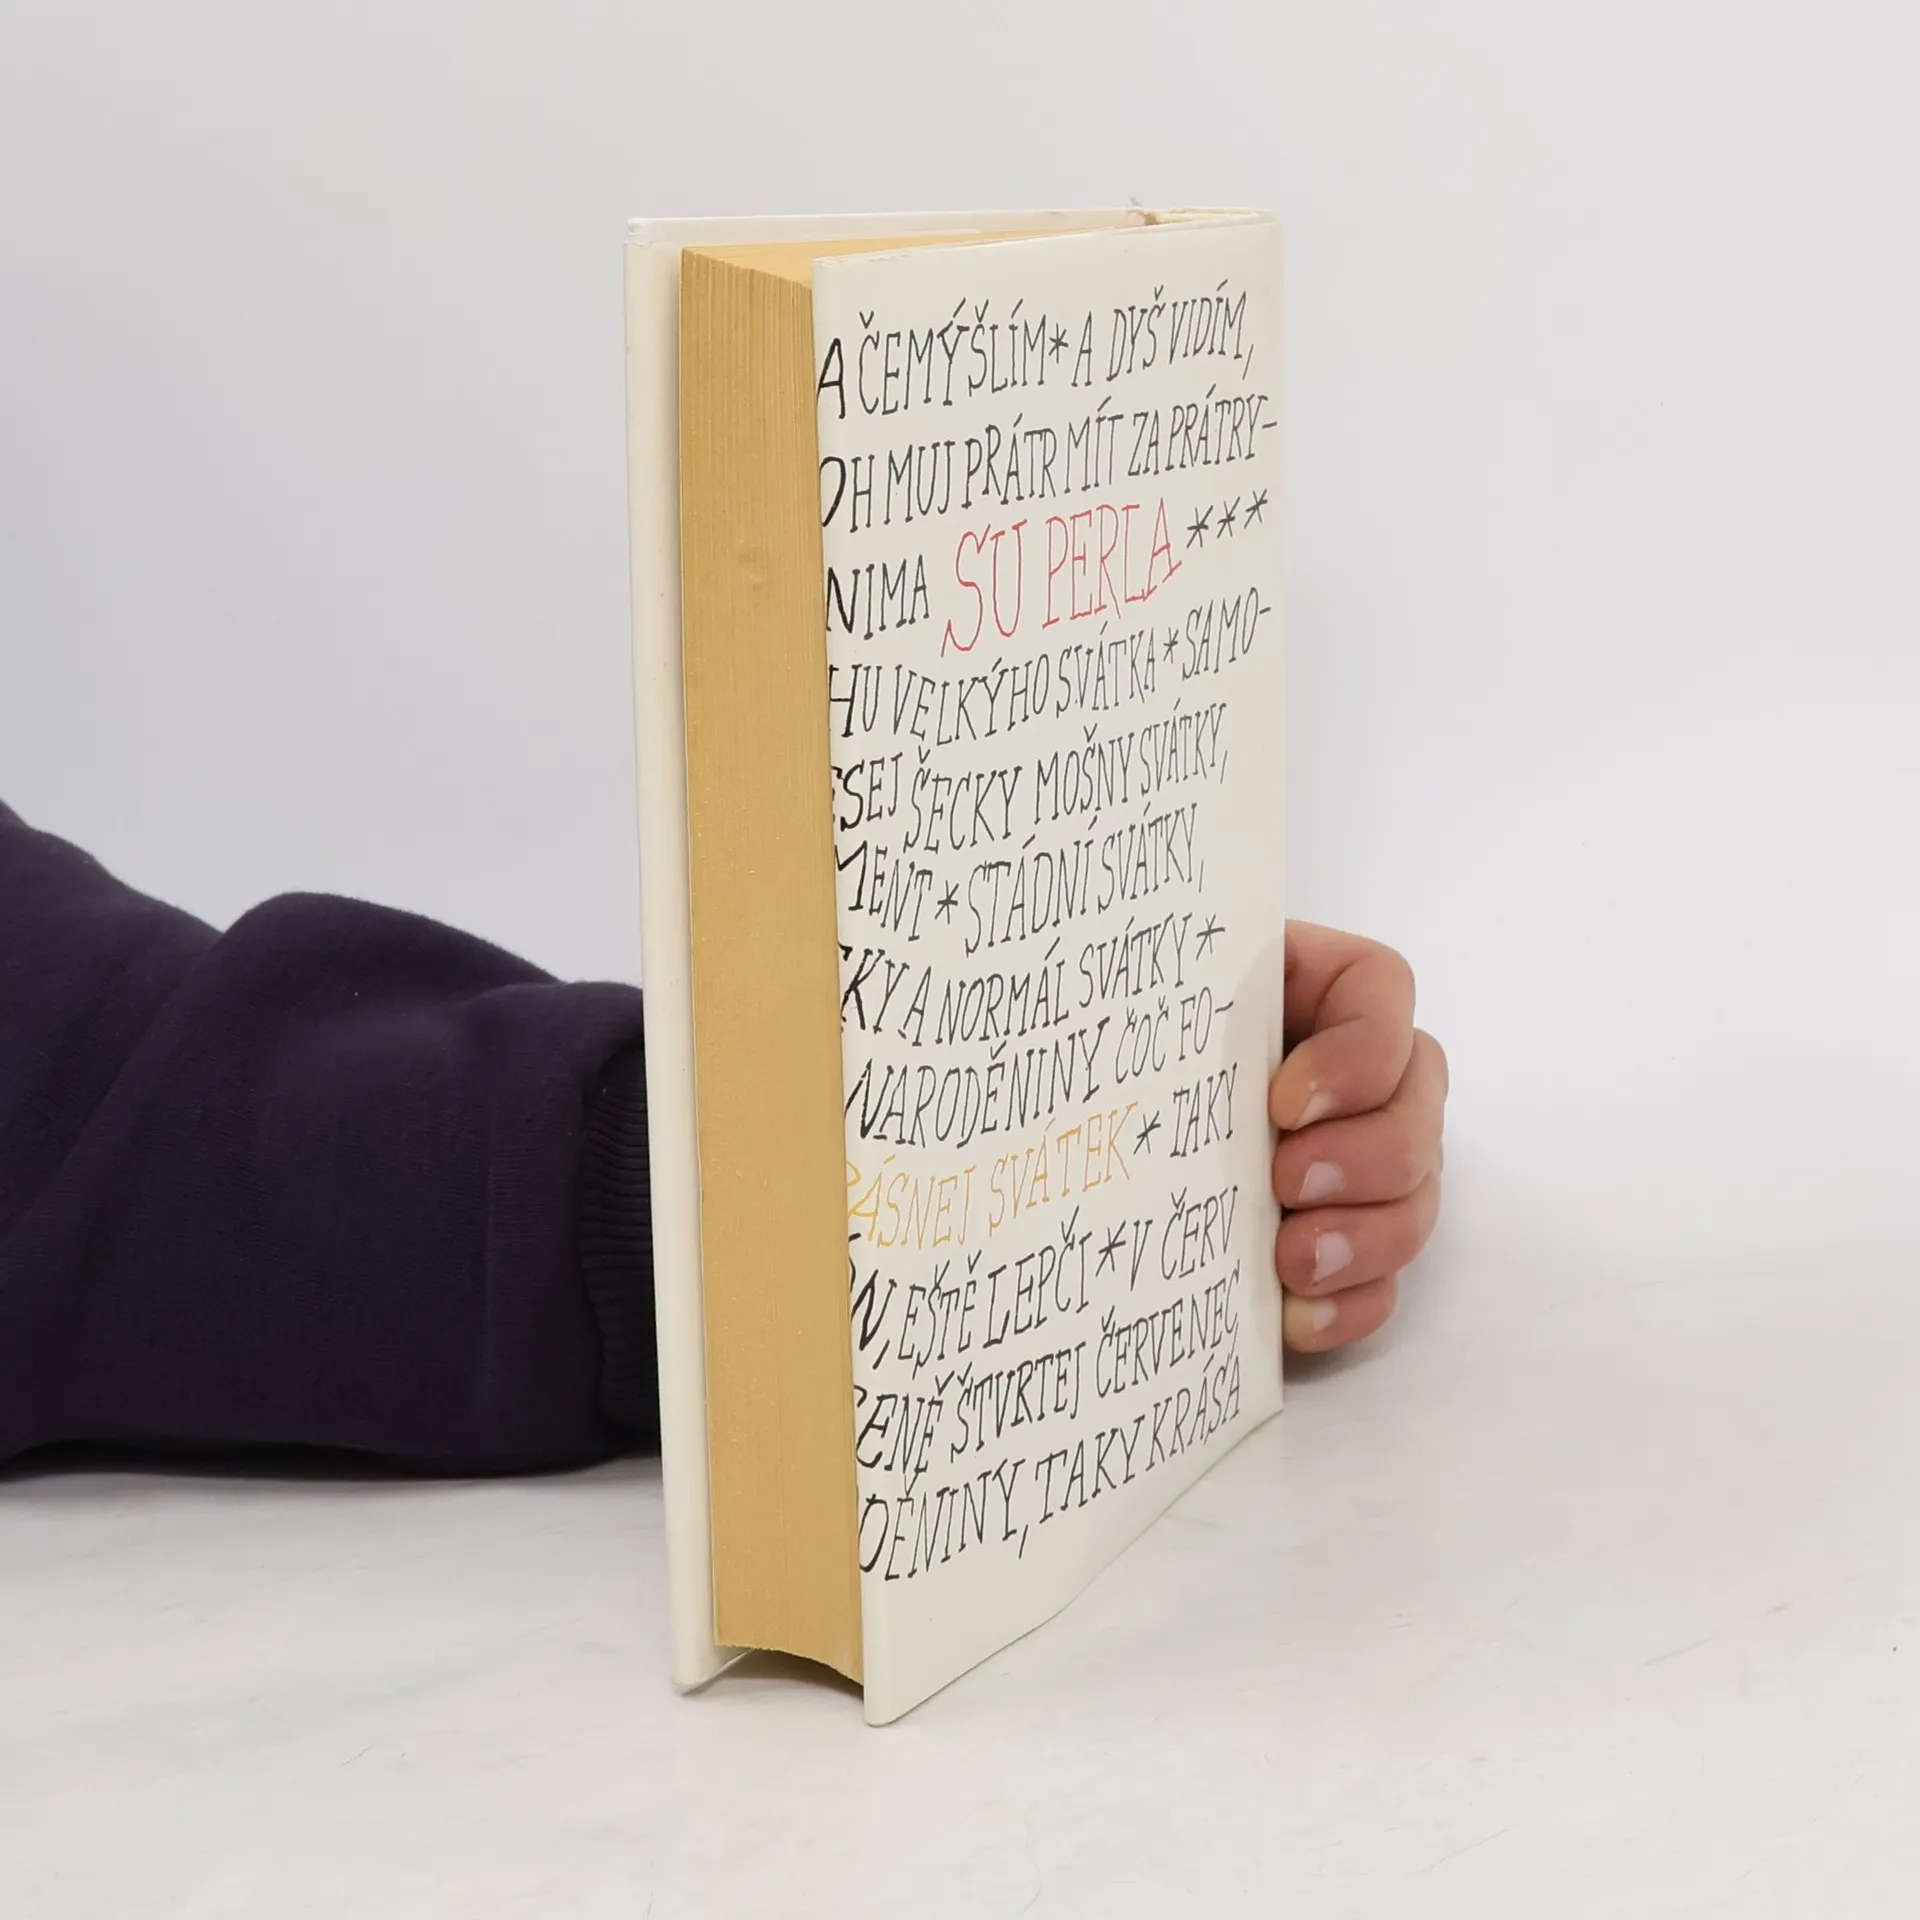 A ČEMÝŠLÍM * A DYŠ VIDÍM,
OH MUJ PRÁTR MÍT ZA PRÁTRY-
NIMA SU PERLA ***
HU VELKÝHO SVÁTKA * SAMO-
ESEJ ŠECKY MOŠNY SVÁTKY,
MENT * STÁDNÍ SVÁTKY,
KY A NORMÁL SVÁTKY *
NARODĚNINY ČOČ FO-
RÁSNEJ SVÁTEK * TAKY
N, EŠTĚ LEPČI * V ČERV
ENĚ ŠTVRTEJ ČERVENEC,
DĚNINY, TAKY KRÁSA